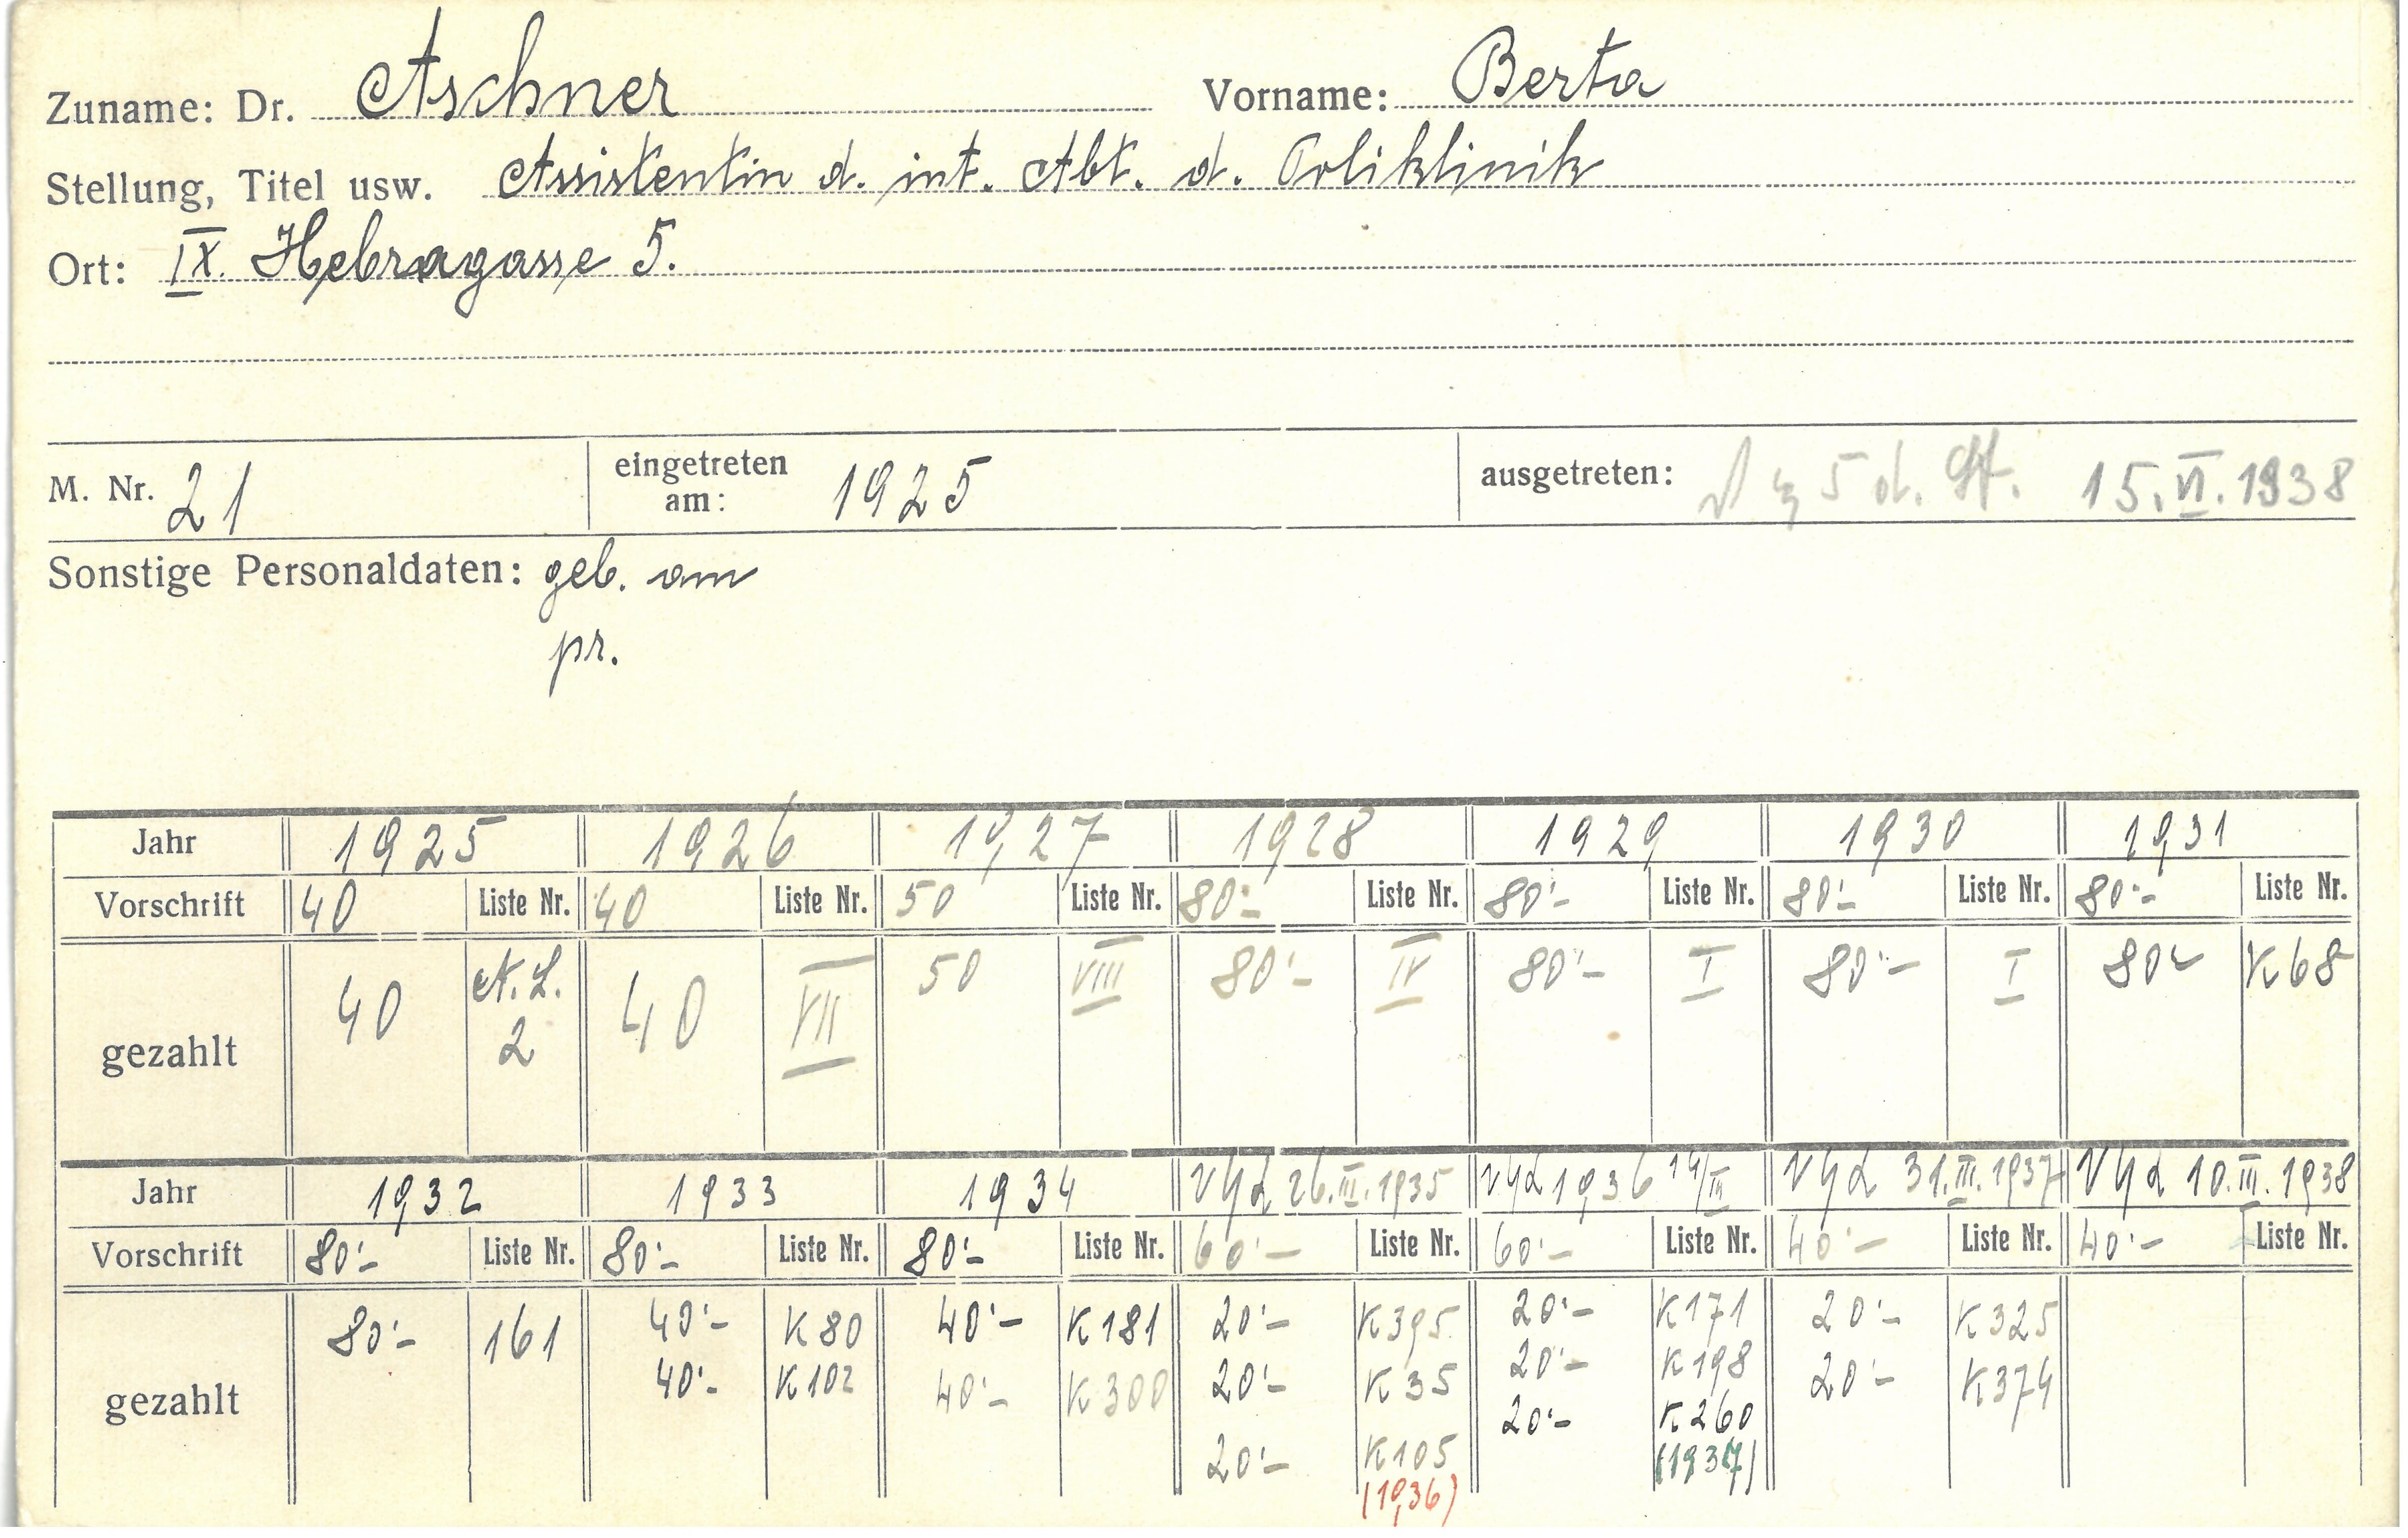 Zuname: Dr. Aschner Vorname: Berta
Stellung, Titel usw. Assistentin d. int. Abt. d. Poliklinik
Ort: IX. Hebragasse 5.
M. Nr. 21 eingetreten am: 1925 ausgetreten: § 5 d. St. 15. VI. 1938
Sonstige Personaldaten: geb. am
pr.
Jahr 1925 1926 1927 1928 1929 1930 1931
Vorschrift 40 Liste Nr. 40 Liste Nr. 50 Liste Nr. 80'- Liste Nr. 80'- Liste Nr. 80'- Liste Nr. 80'- Liste Nr.
gezahlt 40 A. L. 2 40 VII 50 VIII 80'- IV 80'- I 80'- I 80'- K 68
Jahr 1932 1933 1934 VGL 26. III. 1935 VGL 1936 14/III VGL 31. III. 1937 VGL 10. III. 1938
Vorschrift 80'- Liste Nr. 80'- Liste Nr. 80'- Liste Nr. 60'- Liste Nr. 60'- Liste Nr. 40'- Liste Nr. 40'- Liste Nr.
gezahlt 80'- 161 40'- K 80 40'- K 181 20'- K 395 20'- K 171 20'- K 325
40'- K 102 40'- K 300 20'- K 35 20'- K 198 20'- K 374
20'- K 105 20'- K 260
(1936) (1937)